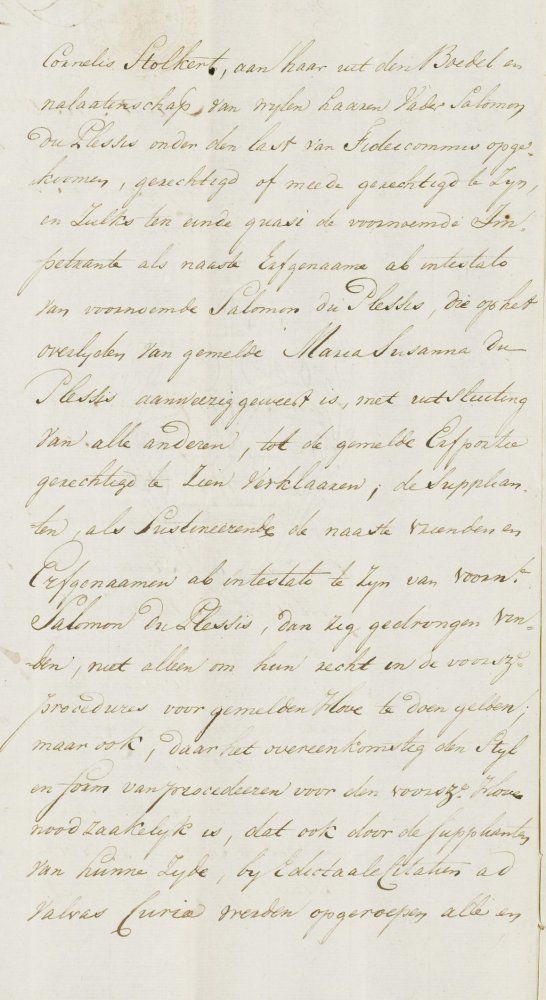 Cornelis Stolkert, aan haar uit den Boedel en
nalaatenschap van wylen haaren Vader Salomon
du Plessis onder den last van Fideicommis opge-
koomen, gerechtigd of meede gerechtigd te Zyn,
en Zulks ten einde quasi de voornoemde Im-
petrante als naaste Erfgenaame ab intestato
van voornoemde Salomon du Plessis, die op het
overlyden van gemelde Maria Susanna du
Plessis aanweezig geweest is, met uitsluiting
van alle anderen, tot de gemelde Erfportie
gerechtigd te Zien Verklaaren; de Supplian-
ten, als Sustineerende de naaste vrienden en
Erfgenaamen ab intestato te Zyn van voorn.t
Salomon du Plessis, dan zig gedrongen vin-
den, niet alleen om hun recht in de voorsz.e
procedures voor gemelden Hove te doen gelden;
maar ook, daar het overeenkomstig den Styl
en form van procedeeren voor den voorsz.e Hove
noodzaakelyk is, dat ook door de Supplianten
van hunne Zyde, by Edictaale Citatien ad
valvas Curiæ werden opgeroepen alle en